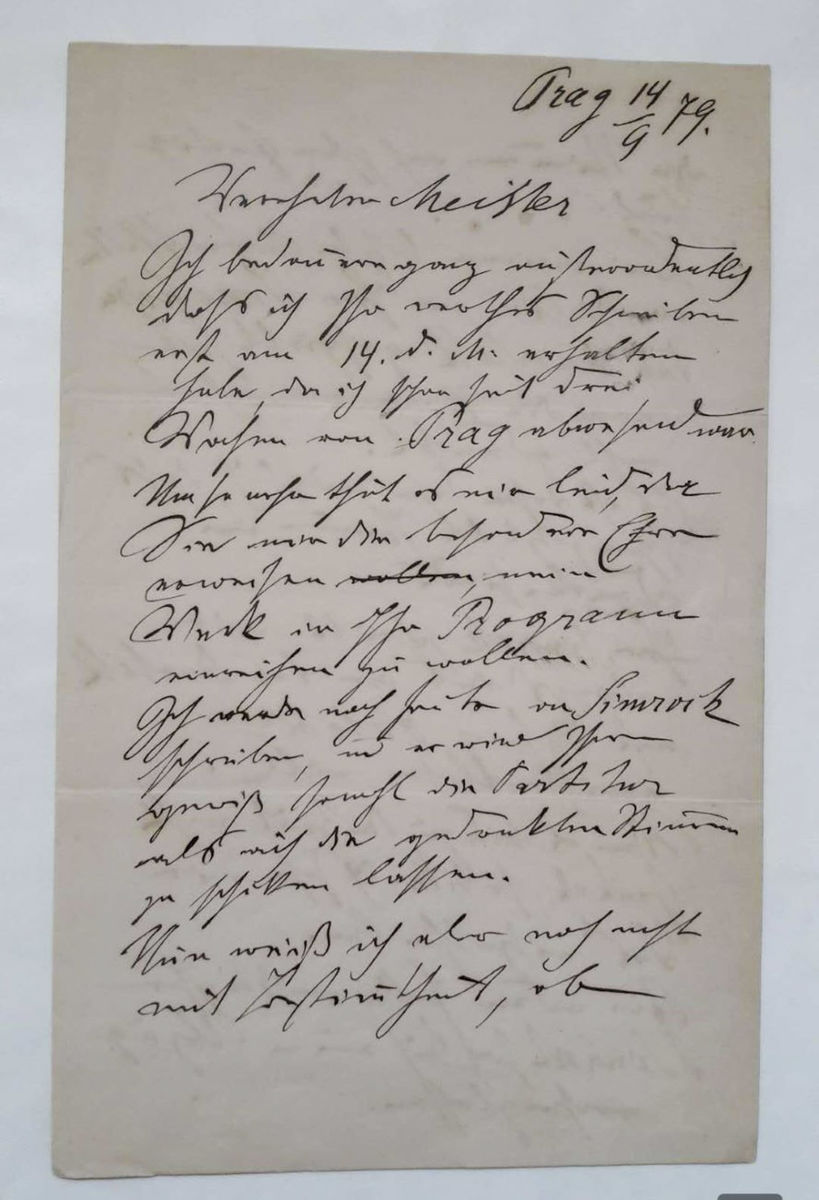 Prag 14/9 79.
Verehrter Meister
Ich bedauere ganz außerordentlich
dass ich Ihr werthes Schreiben
erst am 14. d. M. erhalten
habe, da ich schon seit drei
Wochen von Prag abwesend war.
Um so mehr thut es mir leid, da
Sie mir die besondere Ehre
erweisen wollen, mein
Werk in Ihr Programm
einreihen zu wollen.
Ich werde noch heute an Simrock
schreiben, und er wird Ihnen
gewiß sowohl die Partitur
als auch die gedruckten Stimmen
zu schicken lassen.
Nun weiß ich aber noch nicht
mit Bestimmtheit, ob